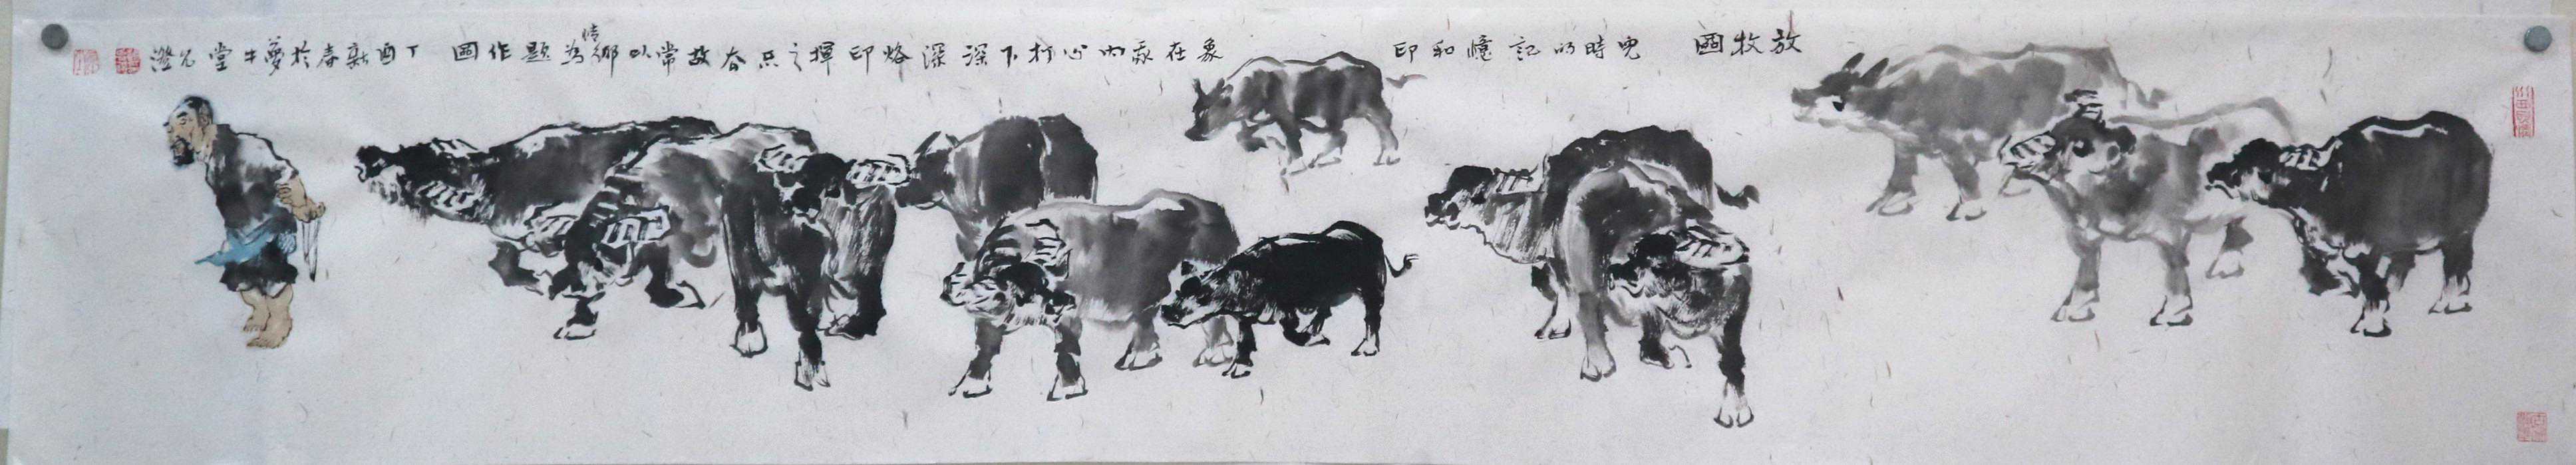 放牧图 兒時的記憶和印象在我内心打下深深烙印揮之不去故常以鄉情為題作图 丁酉新春於夢牛堂 兄澄